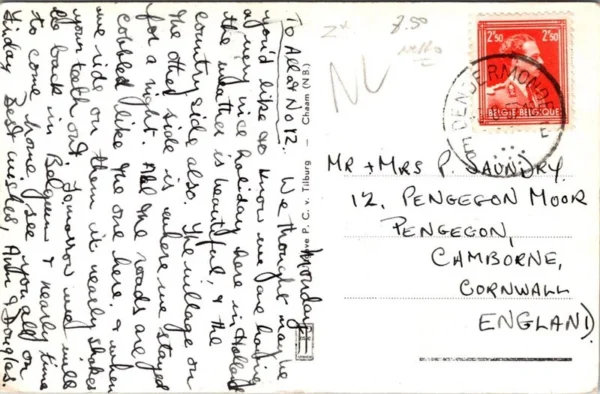 Monday
To All at No 12. We thought maybe
you'd like to know we are having
a very nice holiday here in Holland
the weather is beautiful, & the
countryside also. The village on
the other side is where we stayed
for a night. All the roads are
cobbled like the one here, & when
we ride on them it nearly shakes
your teeth out. Tomorrow we will
be back in Belgium & nearly time
to come home, see you all on
Friday Best wishes, Ann & Douglas.
P. C. v. Tilburg - Chaam (N.B.)
7.50
NL
2F50
2F50
BELGIE-BELGIQUE
DENDERMONDE
MR & MRS P. SAUNDRY
12, PENGEGON MOOR
PENGEGON,
CAMBORNE,
CORNWALL
ENGLAND.